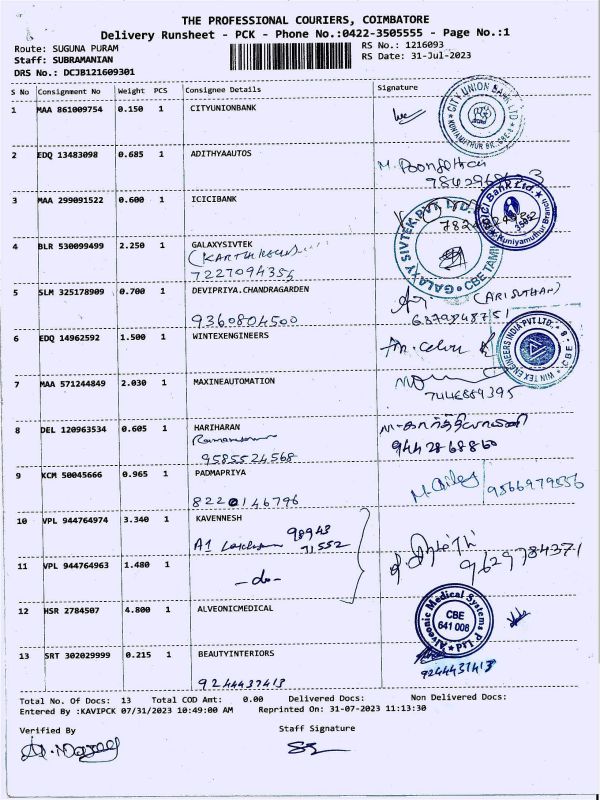 THE PROFESSIONAL COURIERS, COIMBATORE
Delivery Runsheet - PCK - Phone No.:0422-3505555 - Page No.:1
Route: SUGUNA PURAM
RS No.: 1216093
Staff: SUBRAMANIAN
RS Date: 31-Jul-2023
DRS No.: DCJB121609301
S No Consignment No Weight PCS Consignee Details Signature
1 MAA 861009754 0.150 1 CITYUNIONBANK
CITY UNION BANK LTD
KUNIAMUTHUR BR.
2 EDQ 13483098 0.685 1 ADITHYAAUTOS
3 MAA 299091522 0.600 1 ICICIBANK
ICICI Bank Ltd
Kuniyamuthur Branch
4 BLR 530099499 2.250 1 GALAXYSIVTEK
7227094355
GALAXY SIVTEK PVT LTD.
CBE
5 SLM 325178909 0.700 1 DEVIPRIYA.CHANDRAGARDEN
9360804500
6379848751
6 EDQ 14962592 1.500 1 WINTEXENGINEERS
WIN TEX ENGINEERS INDIA PVT LTD,
CBE - 8
7 MAA 571244849 2.030 1 MAXINEAUTOMATION
8 DEL 120963534 0.605 1 HARIHARAN
9585524568
9442868860
9 KCM 50045666 0.965 1 PADMAPRIYA
8220146796
9566979556
10 VPL 944764974 3.340 1 KAVENNESH
A1
98943
71552
11 VPL 944764963 1.480 1
-do-
9629784371
12 HSR 2784507 4.800 1 ALVEONICMEDICAL
Alveonic Medical Systems P Ltd
CBE
641 008
13 SRT 302029999 0.215 1 BEAUTYINTERIORS
9244437413
9244437413
Total No. Of Docs: 13 Total COD Amt: 0.00 Delivered Docs: Non Delivered Docs:
Entered By :KAVIPCK 07/31/2023 10:49:00 AM Reprinted On: 31-07-2023 11:13:30
Verified By Staff Signature